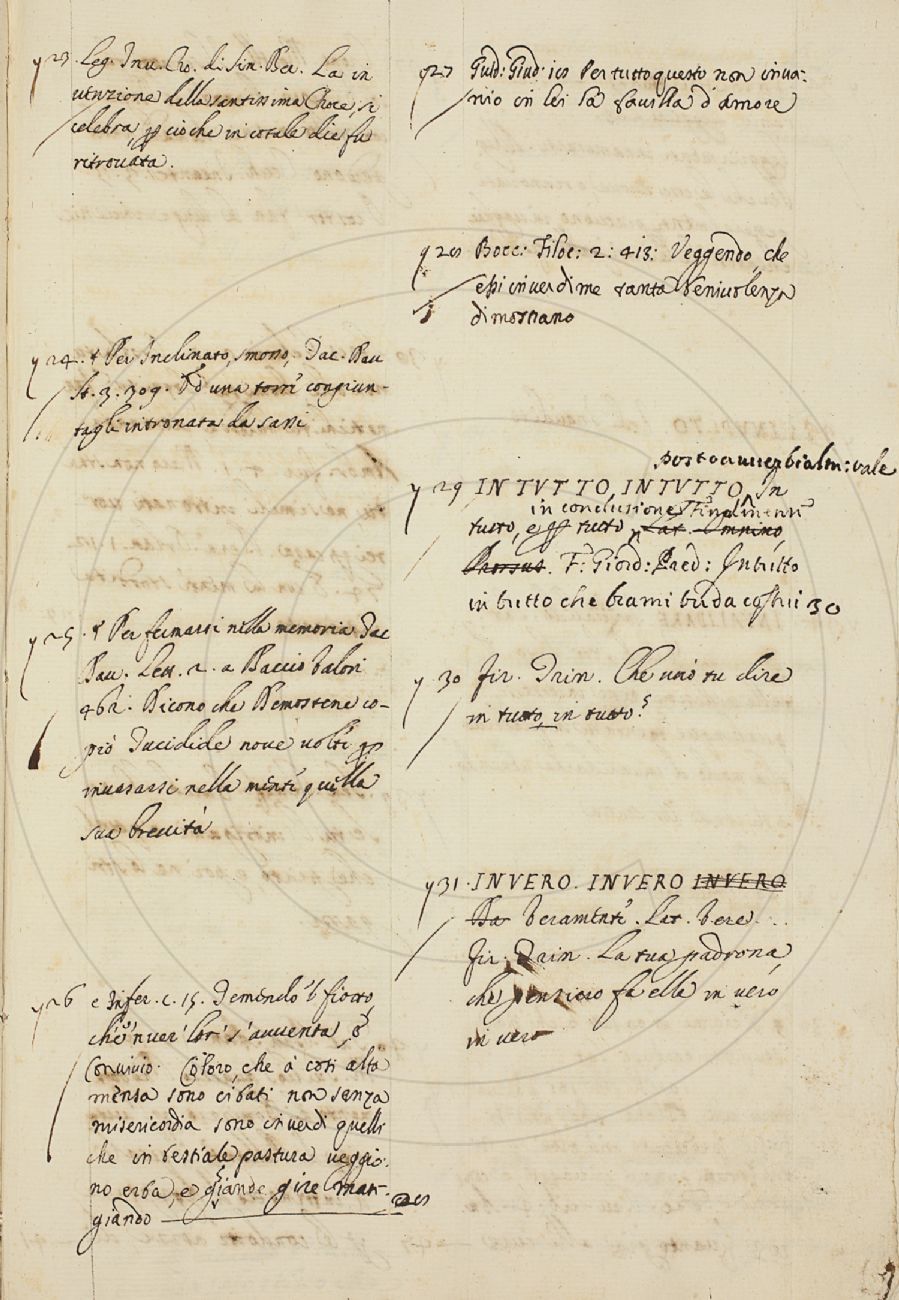 y 23. Leg. Inv. Cro. di Sin. Bea. La in
venzione della santissima Croce, si
celebra, p cio che in cotale die fu
ritrovata.
y 24. † Per Inclinato, smosso, Dav.
St. 3. 309. Ed una torre congiun-
tagli intronata da sassi
y 25. † Per fermarsi nella memoria Dav
Lett. 2. a Baccio Valori
Dicono che Demostene co-
piò Tucidide nove volte p
invasarsi nella mente quella
sua brevità
y 26 e Infer. c. 15. Temendo 'l fiotto,
che 'nver' lor s'avventa, &
Convivio. Coloro, che à così alta
mensa sono cibati non senza
misericordia sono inverdi quelli
che in bestiale pastura veggio-
no erba, e ghiande gire man-
giando 28
y 27 Guid: Giud: 108 Per tutto questo non inva-
nio in lei la favilla d'amore
y 28 Bocc: Filoc: 2: 418: Veggendo, che
essi inverdime tanta benivolenza
dimostrano
posto avverbialm: vale
y 29 IN TVTTO, INTVTTO, In
in conclusione, Finalmente
tutto, e p tutto, Lat. Omnino
Prorsus. F: Giord: Pred: Intutto
in tutto che brami tu da costui 30
y 30 Fir. Trin. Che vuo' tu dire
in tutto, in tutto?
y 31. INVERO. INVERO INVERO
Da Veramente. Lat. Vere.
Fir. Trin. La tua padrona,
che pensiero fa ella in vero
in vero